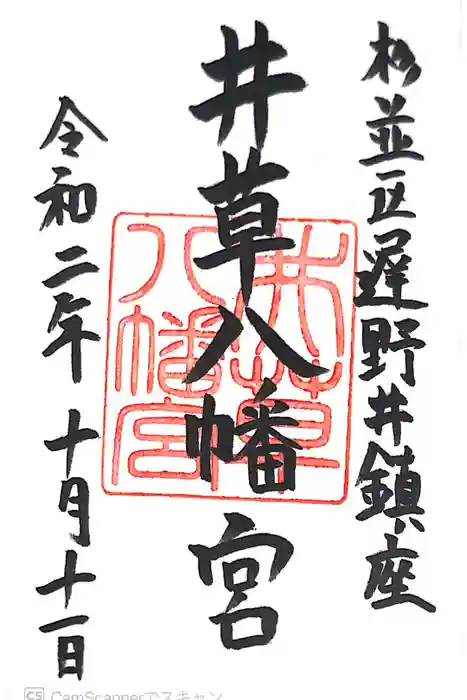 杉並区遅野井鎮座
井草八幡宮
井草
八幡宮
令和二年十月十一日
CS CamScannerでスキャン